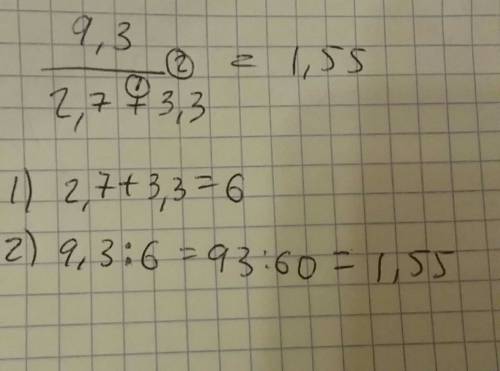 9,3
② = 1,55
2,7 +① 3,3
1) 2,7+3,3=6
2) 9,3:6 = 93:60 = 1,55